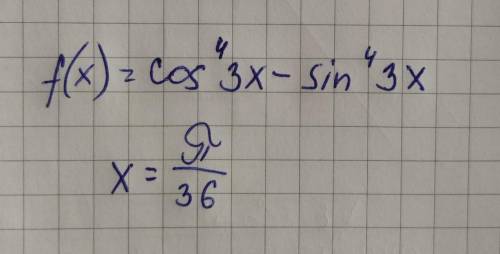 f(x) = cos⁴3x - sin⁴3x
x = π/36